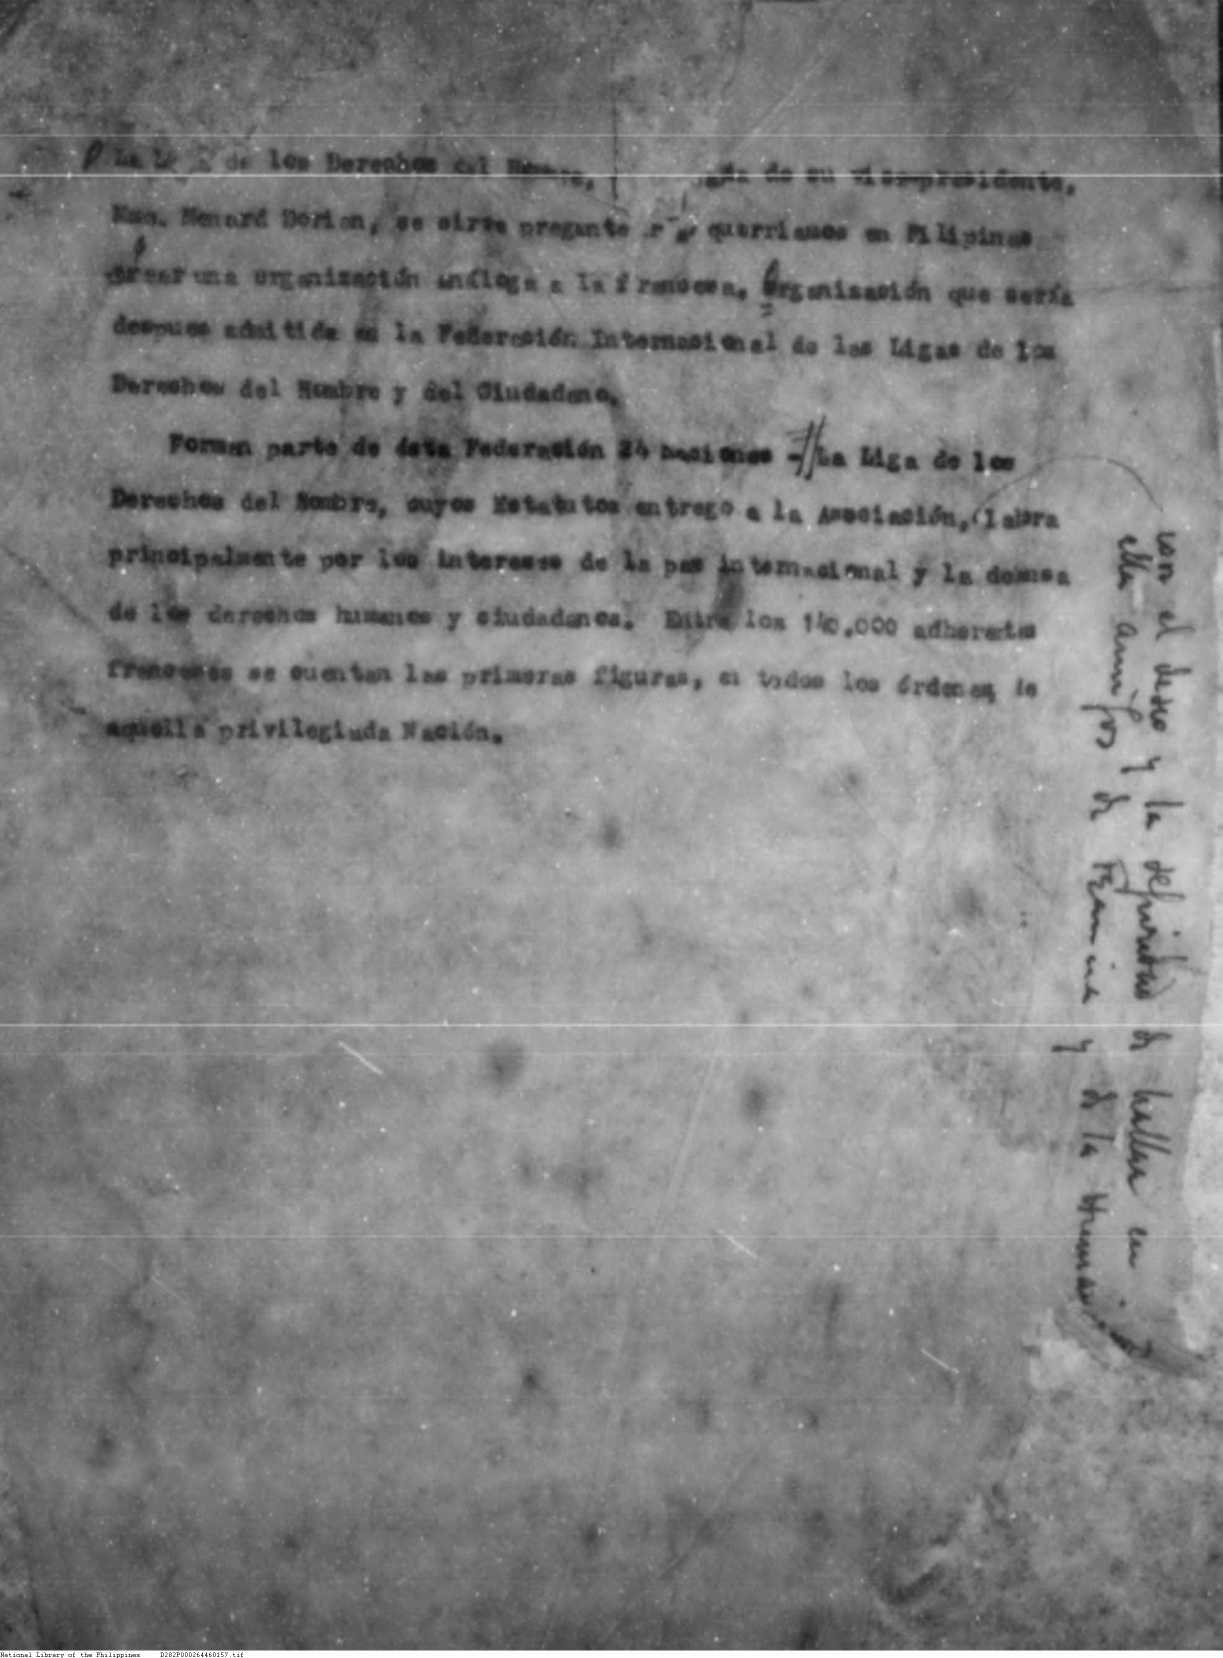 La Liga de los Derechos del Hombre, de su Vice-presidente,
Mme. Menard Dorian, se sirve querriamos en Filipinas
crear una organización análoga a la francesa, organización que sería
despues admitida en la Federación Internacional de las Ligas de los
Derechos del Hombre y del Ciudadano.
Forman parte de ésta Federación 24 naciones - La Liga de los
Derechos del Hombre, cuyos Estatutos entrego a la Asociación, labra
principalmente por los intereses de la paz internacional y la
de los derechos humanos y ciudadanos. Entre los 140.000
franceses se cuentan las primeras figuras, en todos los órdenes, de
aquella privilegiada Nación.
con el deseo y la de hallar en
ella amigos de y de la
National Library of the Philippines D282P000264460157.tif